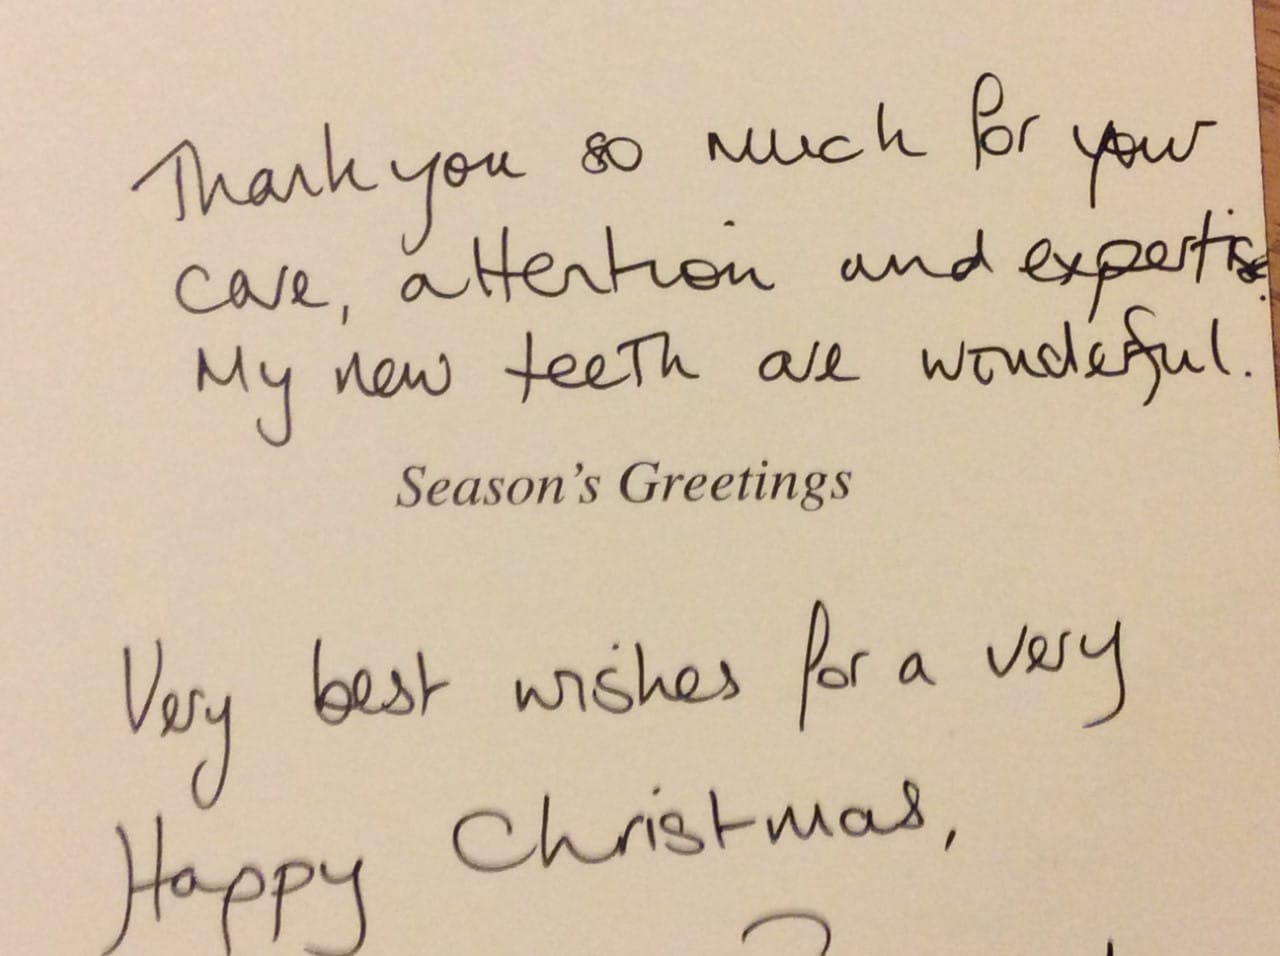 Thank you so much for your
care, attention and expertise.
My new teeth are wonderful.
Season's Greetings
Very best wishes for a very
Happy Christmas,